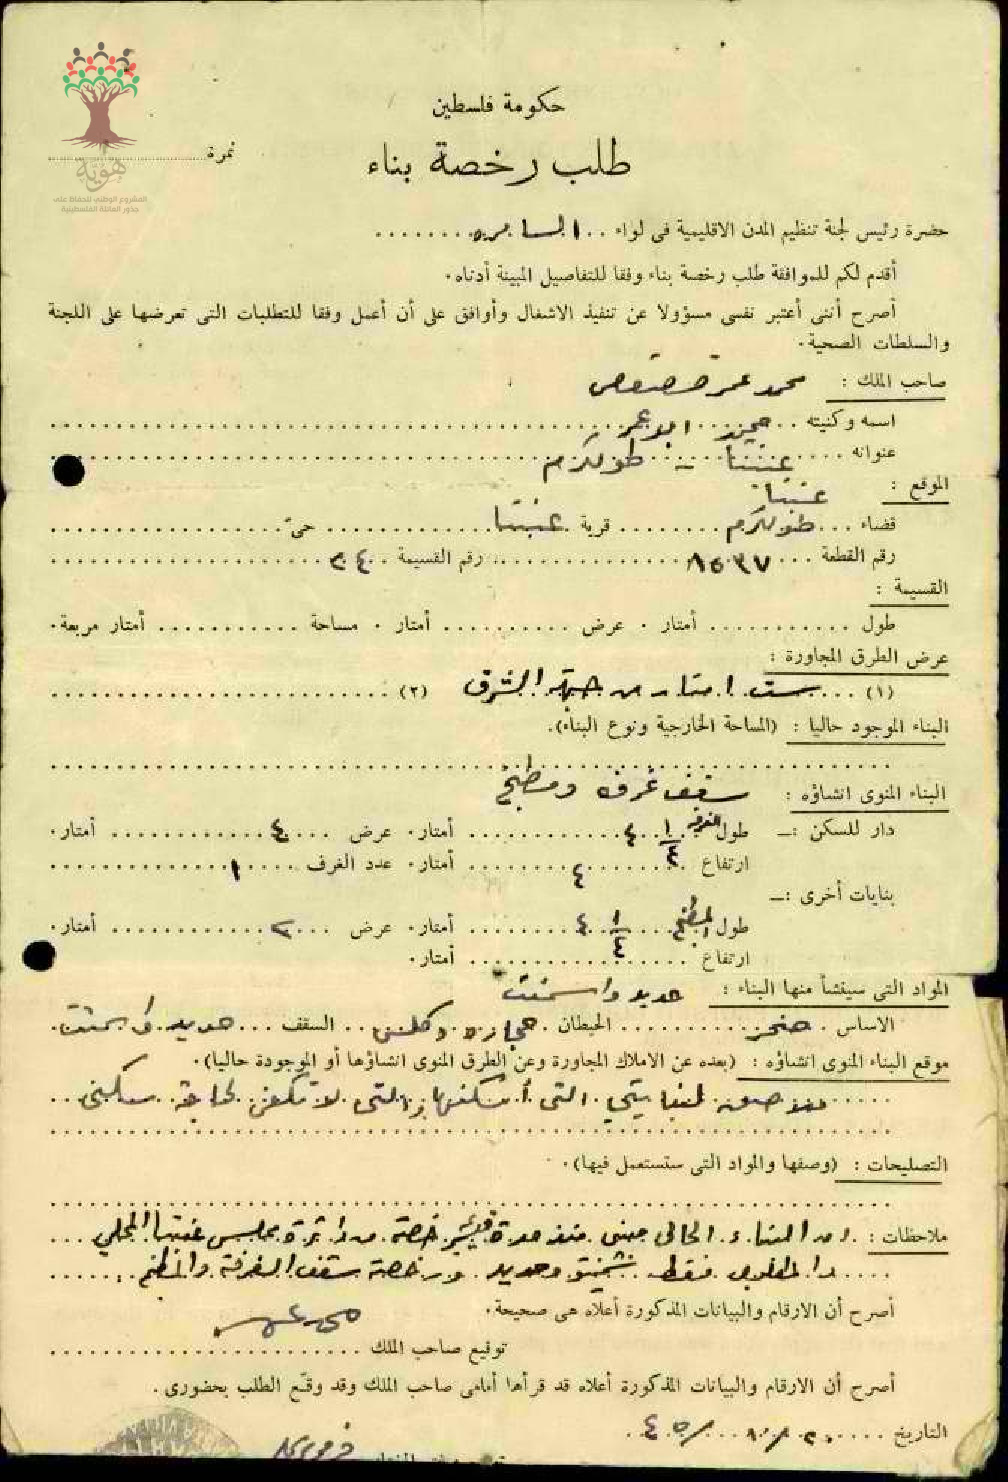 هوية
المشروع الوطني للحفاظ على
جذور العائلة الفلسطينية
حكومة فلسطين
نمرة
طلب رخصة بناء
حضرة رئيس لجنة تنظيم المدن الاقليمية في لواء السامره
أقدم لكم للموافقة طلب رخصة بناء وفقا للتفاصيل المبينة أدناه.
أصرح أنني أعتبر نفسي مسؤولا عن تنفيذ الاشغال وأوافق على أن أعمل وفقا للتطلبات التي تعرضها على اللجنة
والسلطات الصحية.
صاحب الملك : محمد عمر
اسمه وكنيته محمد ابو عمر
عنوانه عنبتا - طولكرم
الموقع : عنبتا
قضاء طولكرم قرية عنبتا حي
رقم القطعة ٨٥٣٧ رقم القسيمة ٣٠٤
القسيمة :
طول أمتار . عرض أمتار . مساحة أمتار مربعة.
عرض الطرق المجاورة :
(١) ست امتار من جهة الشرق (٢)
البناء الموجود حاليا : (المساحة الخارجية ونوع البناء).
البناء المنوى انشاؤه : سقف غرفه ومطبخ
دار للسكن :— طول الغرفه ٤ ١/٢ أمتار. عرض ٤ أمتار.
ارتفاع ٤ أمتار. عدد الغرف ١
بنايات أخرى :—
طول المطبخ ٤ ١/٢ أمتار. عرض ٢ أمتار.
ارتفاع أمتار.
المواد التي سينشأ منها البناء : حديد واسمنت
الاساس الحيطان حجاره وكلس السقف حديد واسمنت
موقع البناء المنوى انشاؤه : (بعده عن الاملاك المجاورة وعن الطرق المنوى انشاؤها أو الموجودة حاليا).
التي أسكنها والتي لا تكفي لحاجة سكني
التصليحات : (وصفها والمواد التي ستستعمل فيها).
ملاحظات : ان البناء الحالي مبني منذ مدة رخصة من دائرة مجلس عنبتا المحلي
والمطلوب فقط وحديد ورخصة سقف الغرفة والمطبخ
أصرح أن الارقام والبيانات المذكورة أعلاه هي صحيحة.
توقيع صاحب الملك محمد عمر
أصرح أن الارقام والبيانات المذكورة أعلاه قد قرأها أمامي صاحب الملك وقد وقع الطلب بحضوري.
التاريخ